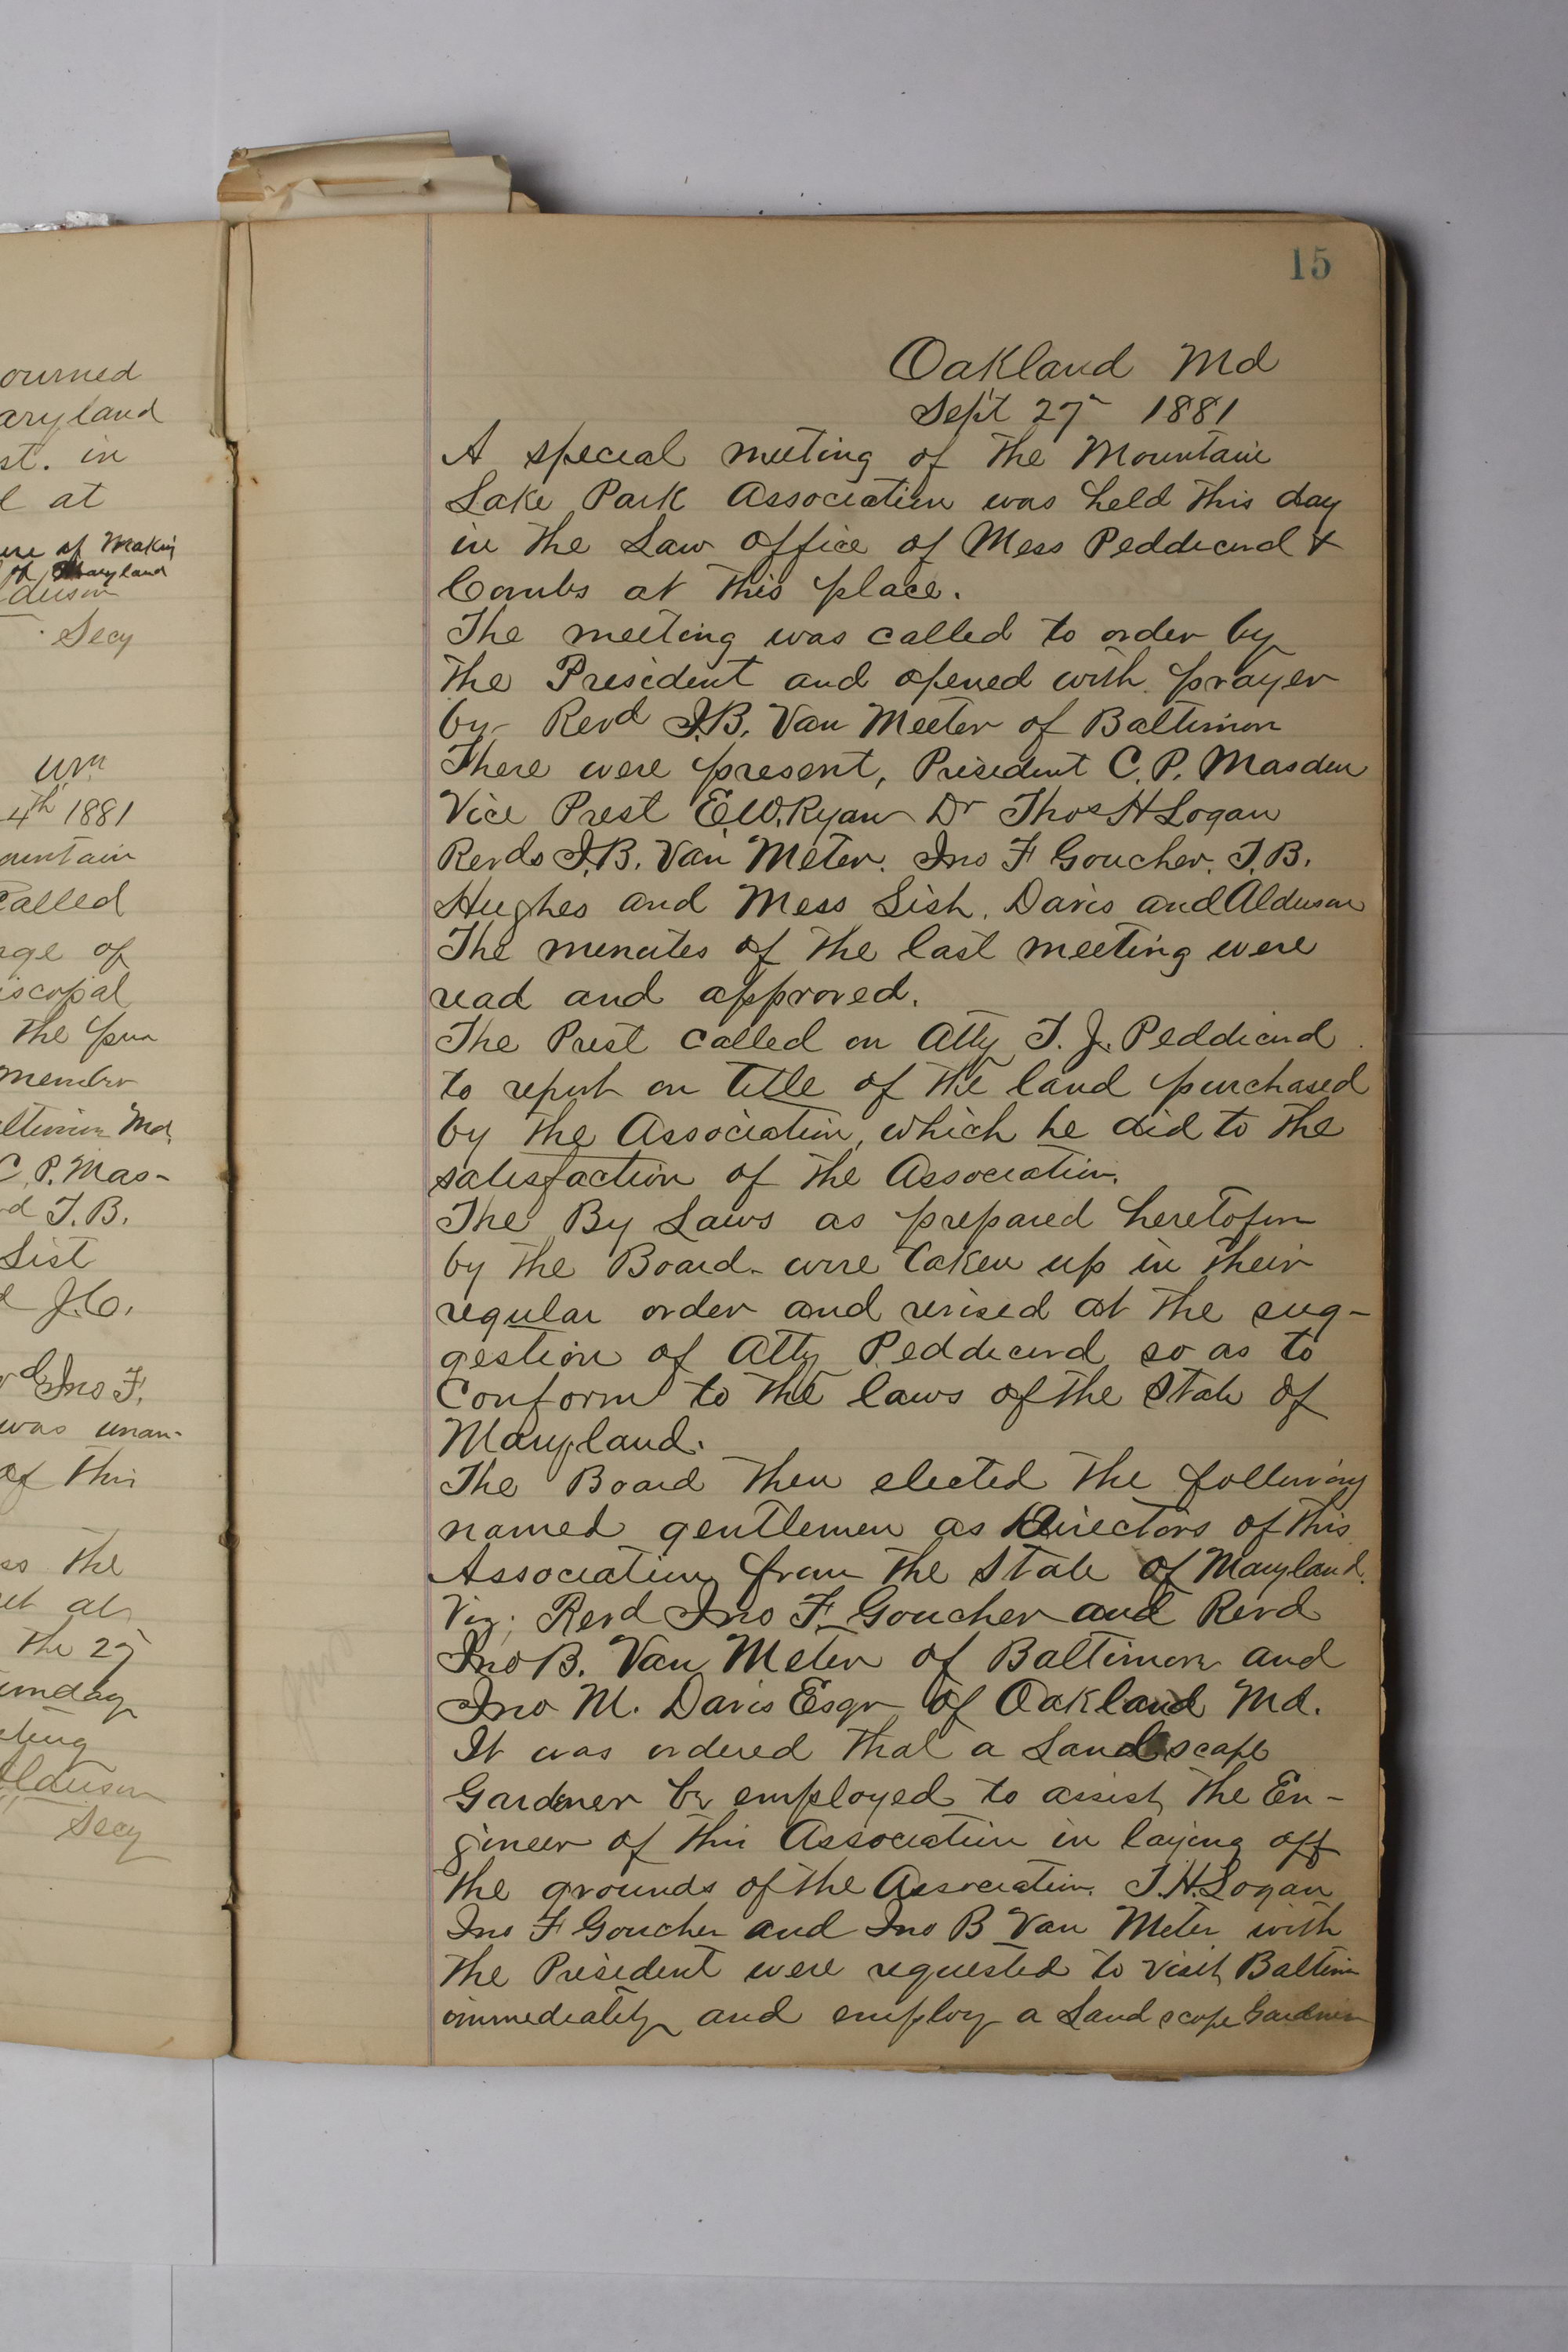 ourned
aryland
st. in
l at
ure of Making
of Maryland
derson
Secy
4th 1881
ountain
Called
rge of
iscopal
the pur
member
altimore Md,
C. P. Mas-
d T. B.
List
& J. C.
Jno F.
was unan-
of this
ss the
et at
the 27
eting
Alderson
Secy
15
Oakland Md
Sept 27 1881
A special meeting of the Mountain
Lake Park Association was held this day
in the Law office of Mess Peddicord &
Combs at this place.
The meeting was called to order by
the President and opened with prayer
by Revd J.B. Van Meeter of Baltimore
There were present, President C. P. Masden
Vice Prest E.W. Ryan Dr Thos H Logan
Revds J.B. Van Meter. Jno F Goucher. T.B.
Hughes and Mess Sish, Davis and Alderson
The minutes of the last meeting were
read and approved.
The Prest called on Atty T. J. Peddicord
to report on title of the land purchased
by the Association, which he did to the
satisfaction of the Association.
The By Laws as prepared heretofore
by the Board were taken up in their
regular order and revised at the sug-
gestion of Atty Peddicord so as to
Conform to the laws of the State of
Maryland.
The Board then elected the following
named gentlemen as Directors of this
Association from the State of Maryland.
Viz; Revd Jno F. Goucher and Revd
Jno B. Van Meter of Baltimore and
Jno M. Davis Esqr of Oakland Md.
It was ordered that a Landscape
Gardner be employed to assist the En-
gineer of this Association in laying off
the grounds of the Association. T.H. Logan
Jno F Goucher and Jno B Van Meter with
the President were requested to visit Baltimore
immediately and employ a Landscape Gardner